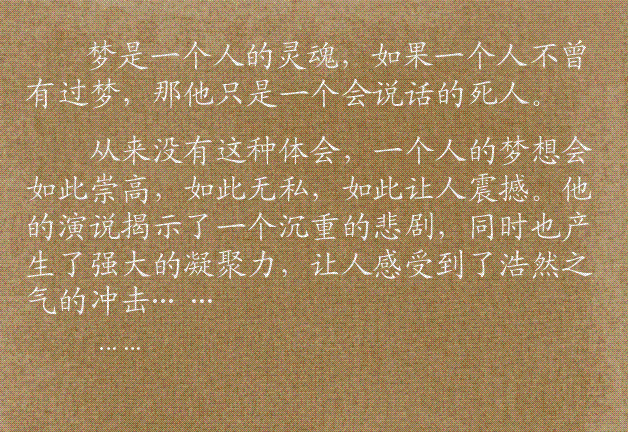 梦是一个人的灵魂，如果一个人不曾
有过梦，那他只是一个会说话的死人。
从来没有这种体会，一个人的梦想会
如此崇高，如此无私，如此让人震撼。他
的演说揭示了一个沉重的悲剧，同时也产
生了强大的凝聚力，让人感受到了浩然之
气的冲击… …
… …